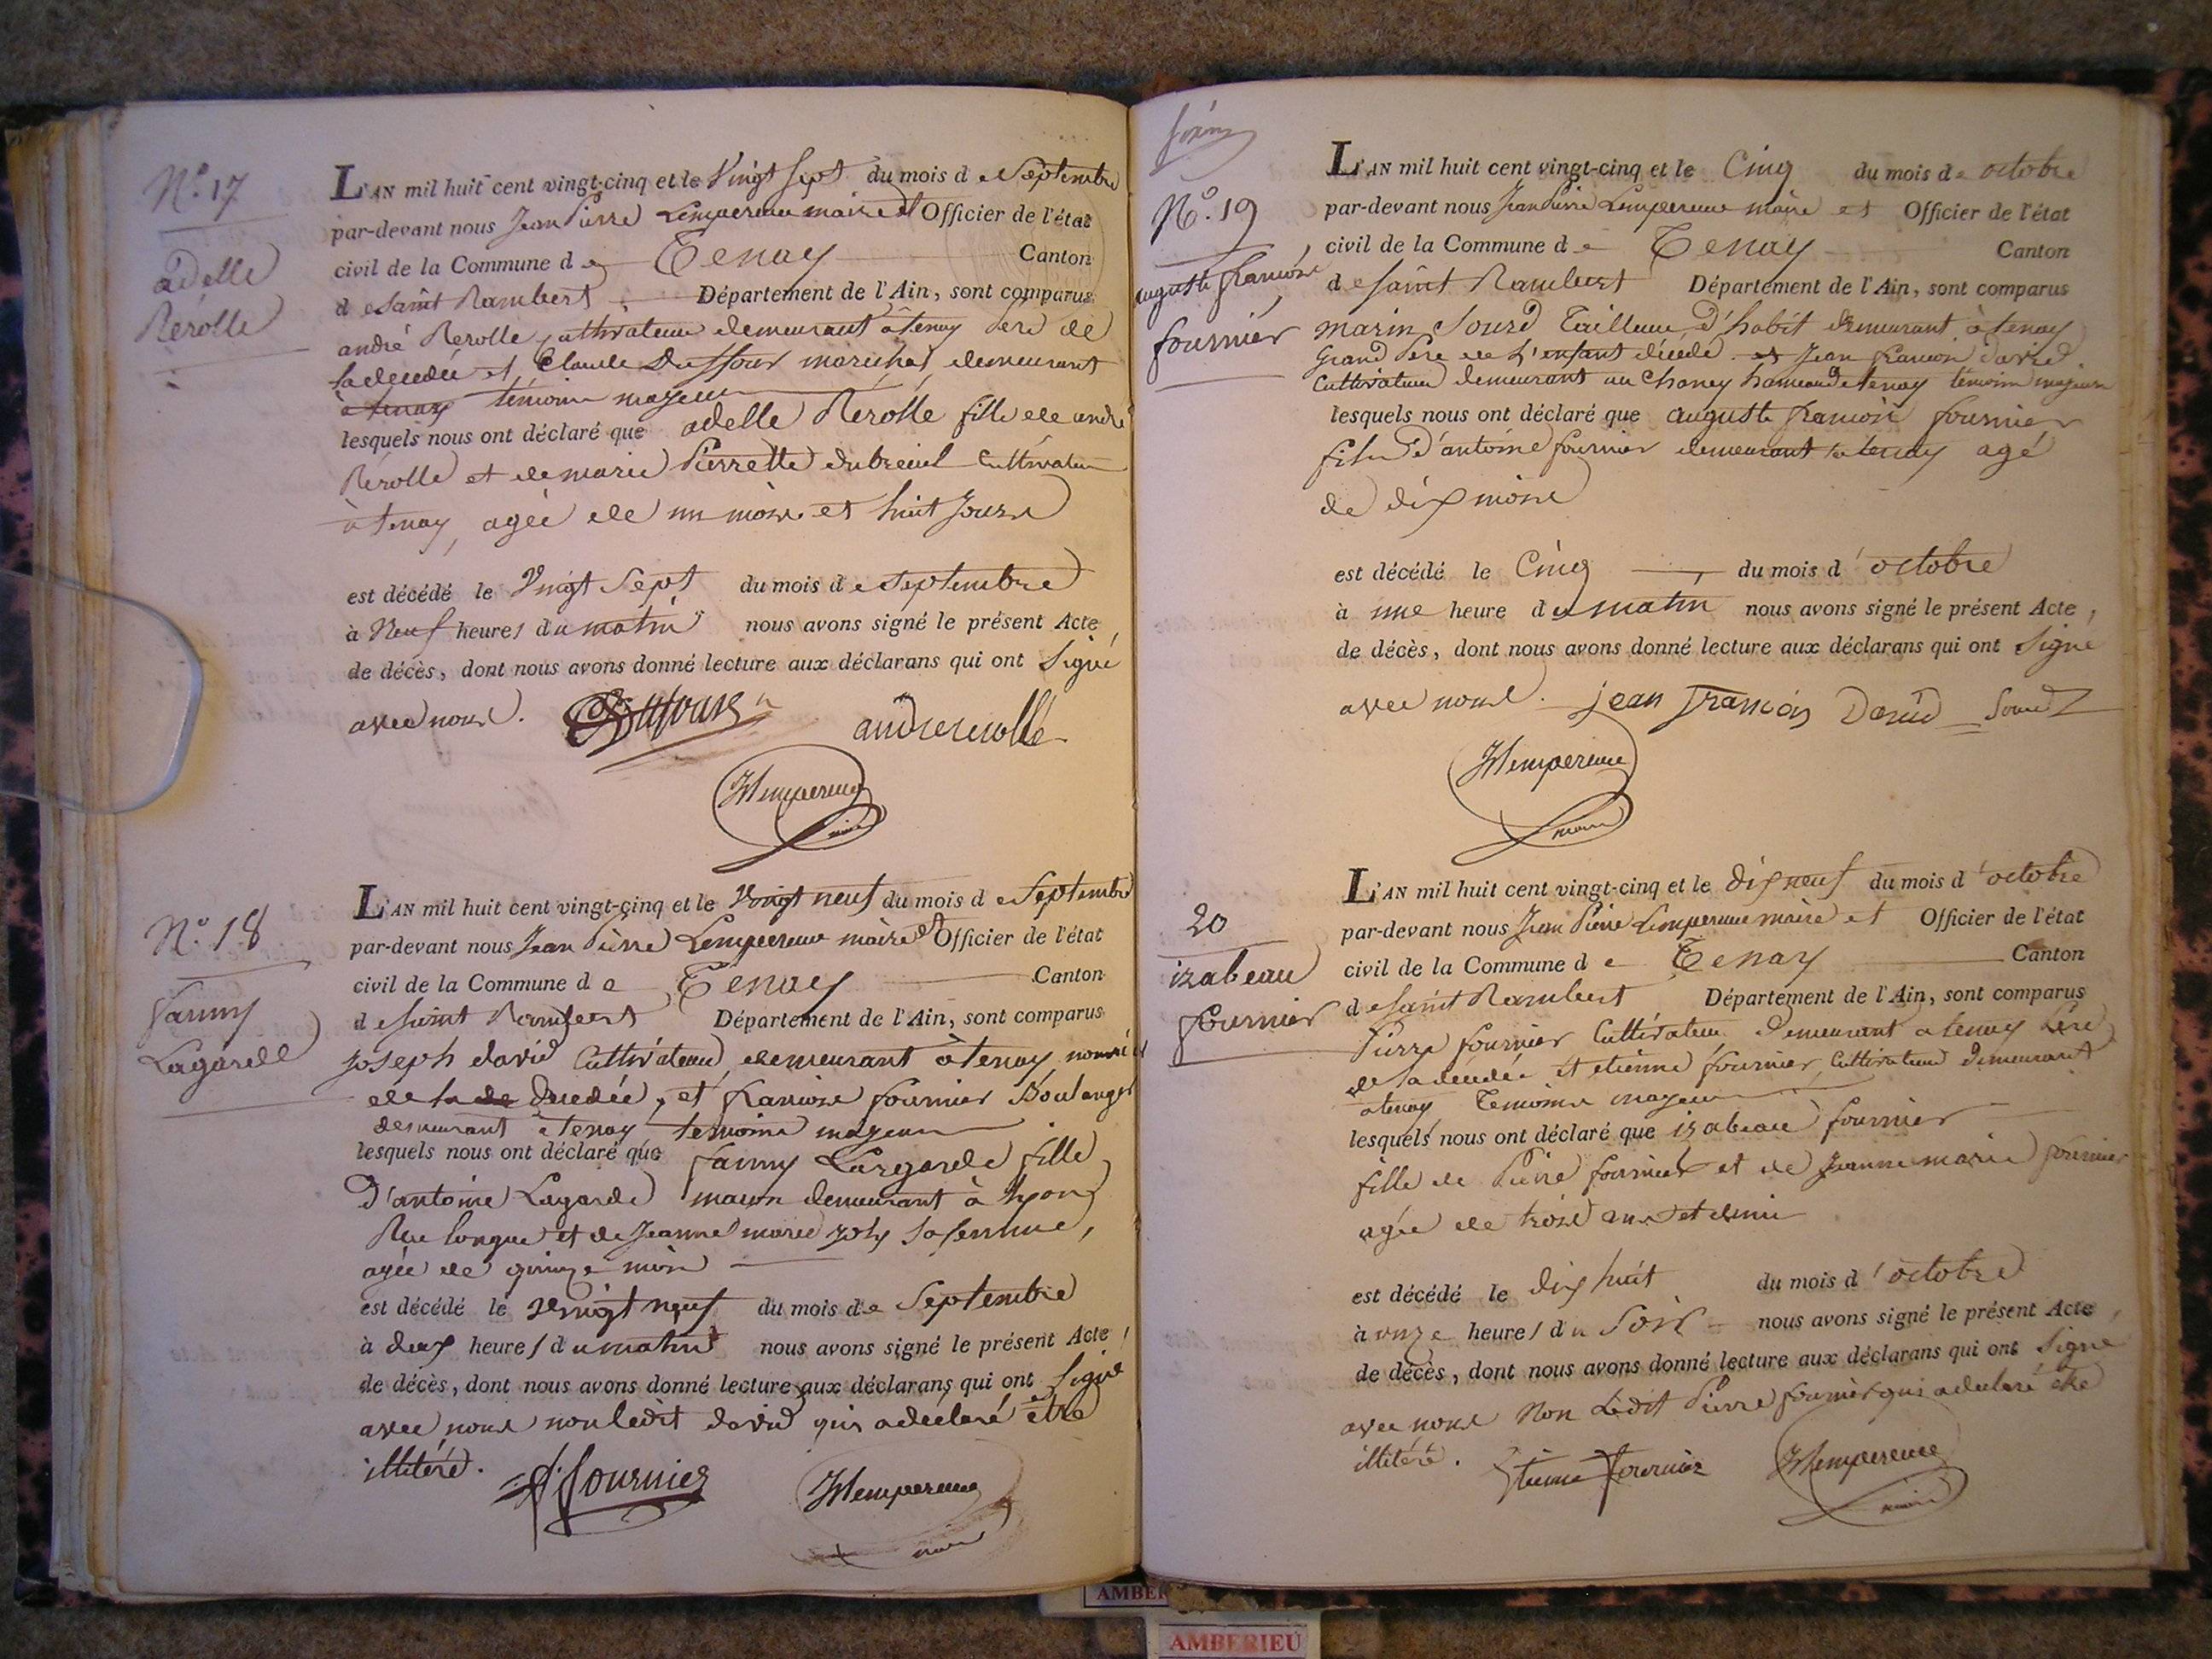 N.º 17
adelle
Rérolle
L'AN mil huit cent vingt-cinq et le Vingt Sept du mois de Septembre
par-devant nous Jean Pierre Lempereur maire et Officier de l'état
civil de la Commune de Tenay Canton
de Saint Rambert Département de l'Ain, sont comparus
andré Rérolle cultivateur demeurant à tenay Pere de
la décédée et Claude Duffour maréchal demeurant
à tenay témoins majeurs
lesquels nous ont déclaré que adelle Rérolle fille de andré
Rérolle et de marie Pierrette dubreuil Cultivateur
à tenay, agée de un mois et huit Jours
est décédé le Vingt Sept du mois de Septembre
à Neuf heures du matin nous avons signé le présent Acte
de décès, dont nous avons donné lecture aux déclarans qui ont Signé
avec nous.
andre rerolle
JPLempereur
maire
N.º 18
fanny
Lagarde
L'AN mil huit cent vingt-cinq et le Vingt neuf du mois de Septembre
par-devant nous Jean Pierre Lempereur maire et Officier de l'état
civil de la Commune de Tenay Canton
de Saint Rambert Département de l'Ain, sont comparus
joseph david Cultivateur demeurant à tenay
de la décédée, et francois fournier Boulanger
demeurant à tenay temoins majeurs
lesquels nous ont déclaré que fanny Lagarde fille
D'antoine Lagarde macon demeurant à Lyon
Rue longue et de Jeanne marie joly sa femme,
agée de quinze mois
est décédé le vingt neuf du mois de Septembre
à deux heures du matin nous avons signé le présent Acte
de décès, dont nous avons donné lecture aux déclarans qui ont Signé
avec nous non ledit david qui a déclaré être
illitéré.
fournier
JPLempereur
maire
N.º 19
auguste francois
fournier
L'AN mil huit cent vingt-cinq et le Cinq du mois de octobre
par-devant nous Jean Pierre Lempereur maire et Officier de l'état
civil de la Commune de Tenay Canton
de Saint Rambert Département de l'Ain, sont comparus
marin Sourd Tailleur d'habit demeurant à tenay
Grand Pere de L'enfant décédé et Jean francois david
Cultivateur demeurant au Chaney hameau de tenay témoins majeurs
lesquels nous ont déclaré que auguste francois fournier
fils d'antoine fournier demeurant à tenay agé
de dix mois
est décédé le Cinq du mois d'octobre
à une heure du matin nous avons signé le présent Acte
de décès, dont nous avons donné lecture aux déclarans qui ont Signé
avec nous. jean francois David Sourd
JPLempereur
maire
20
izabeau
fournier
L'AN mil huit cent vingt-cinq et le dix neuf du mois d'octobre
par-devant nous Jean Pierre Lempereur maire et Officier de l'état
civil de la Commune de Tenay Canton
de Saint Rambert Département de l'Ain, sont comparus
Pierre fournier Cultivateur demeurant a tenay Pére
de la décédée et etienne fournier Cultivateur demeurant
a tenay Temoins majeurs
lesquels nous ont déclaré que izabeau fournier
fille de Pierre fournier et de Jeanne marie fournier
agée de trois ans et demi
est décédé le dix huit du mois d'octobre
à onze heures du Soir nous avons signé le présent Acte
de décès, dont nous avons donné lecture aux déclarans qui ont Signé
avec nous Non Ledit Pierre fournier qui a déclaré être
illitéré. Etienne fournier
JPLempereur
maire
AMBERIEU